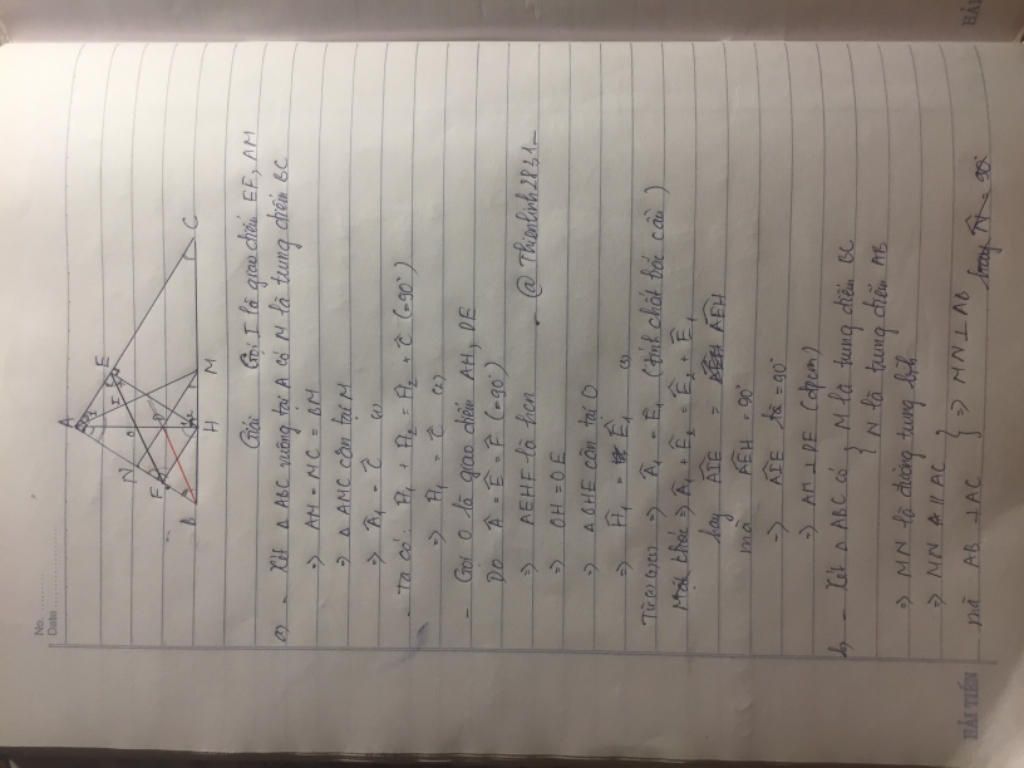 No. ............
Date ....................
A
N
E
F
I
O
D
B
H
M
C
Giải Gọi I là giao điểm EF, AM
a) - Xét Δ ABC vuông tại A có M là trung điểm BC
=> AM = MC = BM
=> Δ AMC cân tại M
=> Â₁ = Ĉ (1)
- Ta có: Ĥ₁ + Ĥ₂ = Ĥ₂ + Ĉ (=90°)
=> Ĥ₁ = Ĉ (2)
- Gọi O là giao điểm AH, DE
Do Â = Ê = F̂ (=90°)
=> AEHF là hcn
=> OH = OE
=> Δ OHE cân tại O
=> Ĥ₁ = Ê₁ (3)
Từ (1)(2)(3) => Â₁ = Ê₁ (tính chất bắc cầu)
Mặt khác => Â₁ + Ê₂ = Ê₂ + Ê₁
hay AIE = AEH
mà AEH = 90°
=> AIE = 90°
=> AM ⊥ DE (đpcm)
b, - Xét Δ ABC có { M là trung điểm BC
N là trung điểm AB
=> MN là đường trung bình
=> MN // AC
mà AB ⊥ AC } => MN ⊥ AB
HẢI TIẾN
HẢI